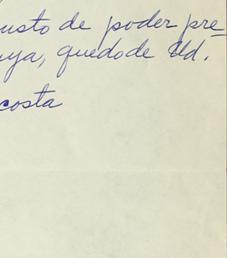 usto de poder pre=
uya, quedo de Ud.
costa